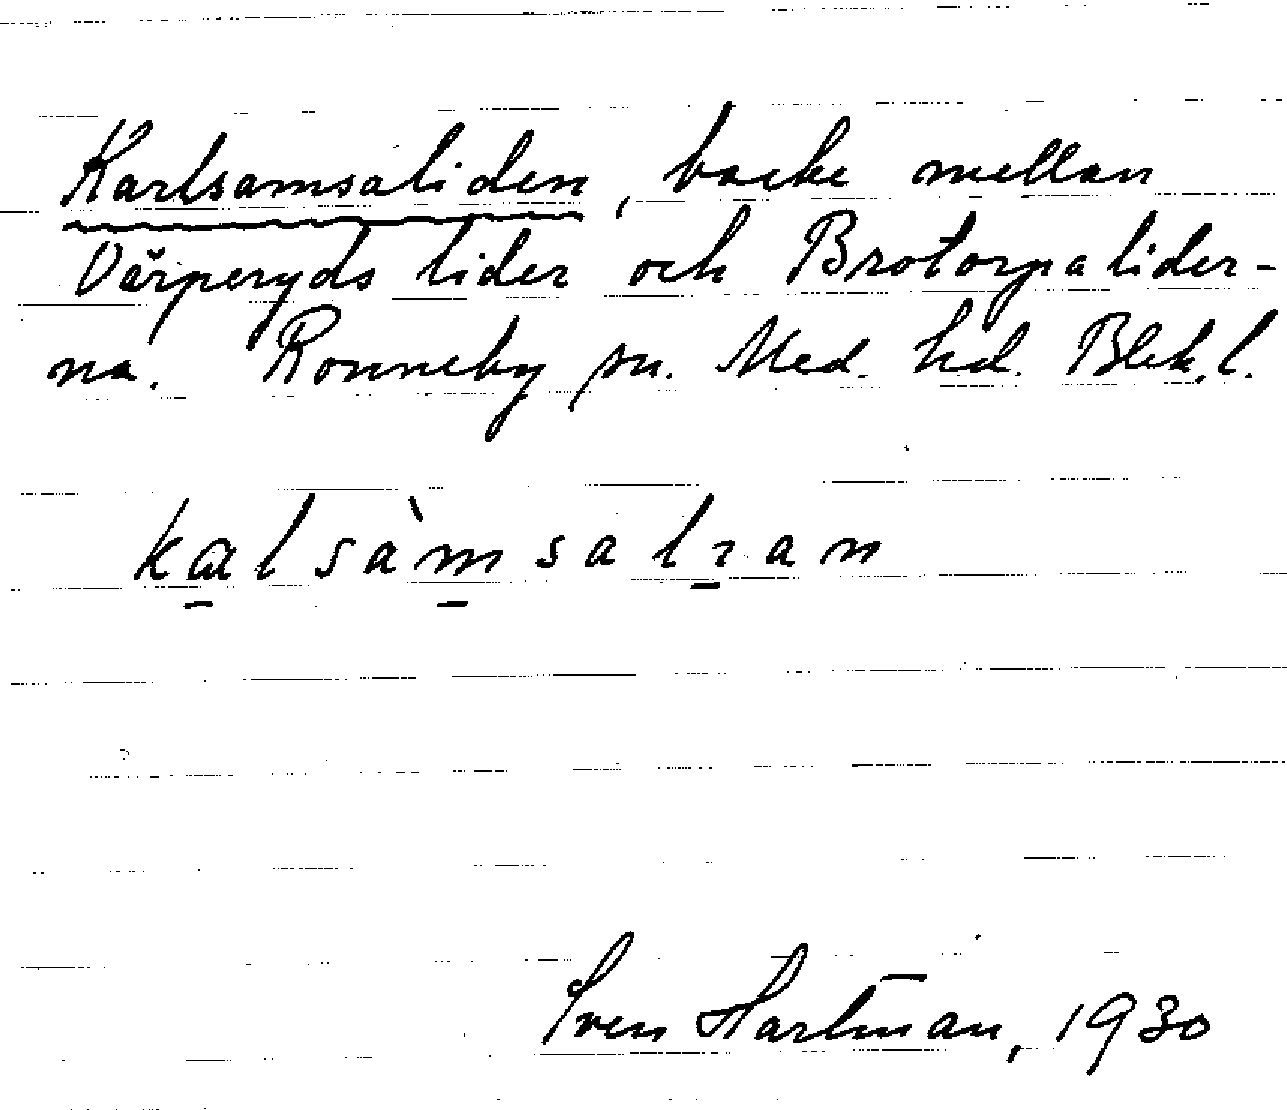 Karlsamsaliden, backe mellan
Värperyds lider och Brotorpalider-
na. Ronneby sn. Med. hd. Blek. l.
kalsàmsalıan
Sven Hartman, 1930